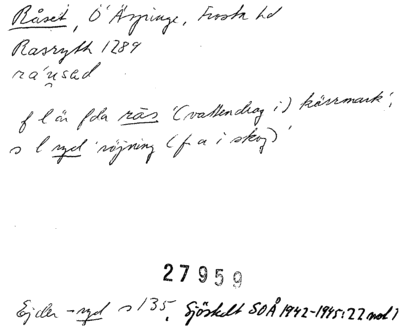 Råset, Ö Äspinge, Frosta hd
Rasryth 1289
rá'u̯sad
f l är fda rås '(vattendrag i) kärrmark',
s l ryd 'röjning (f a i skog)'
27959
Ejder -ryd s 135, Sjöstedt SOÅ 1942-1945:22 not 1